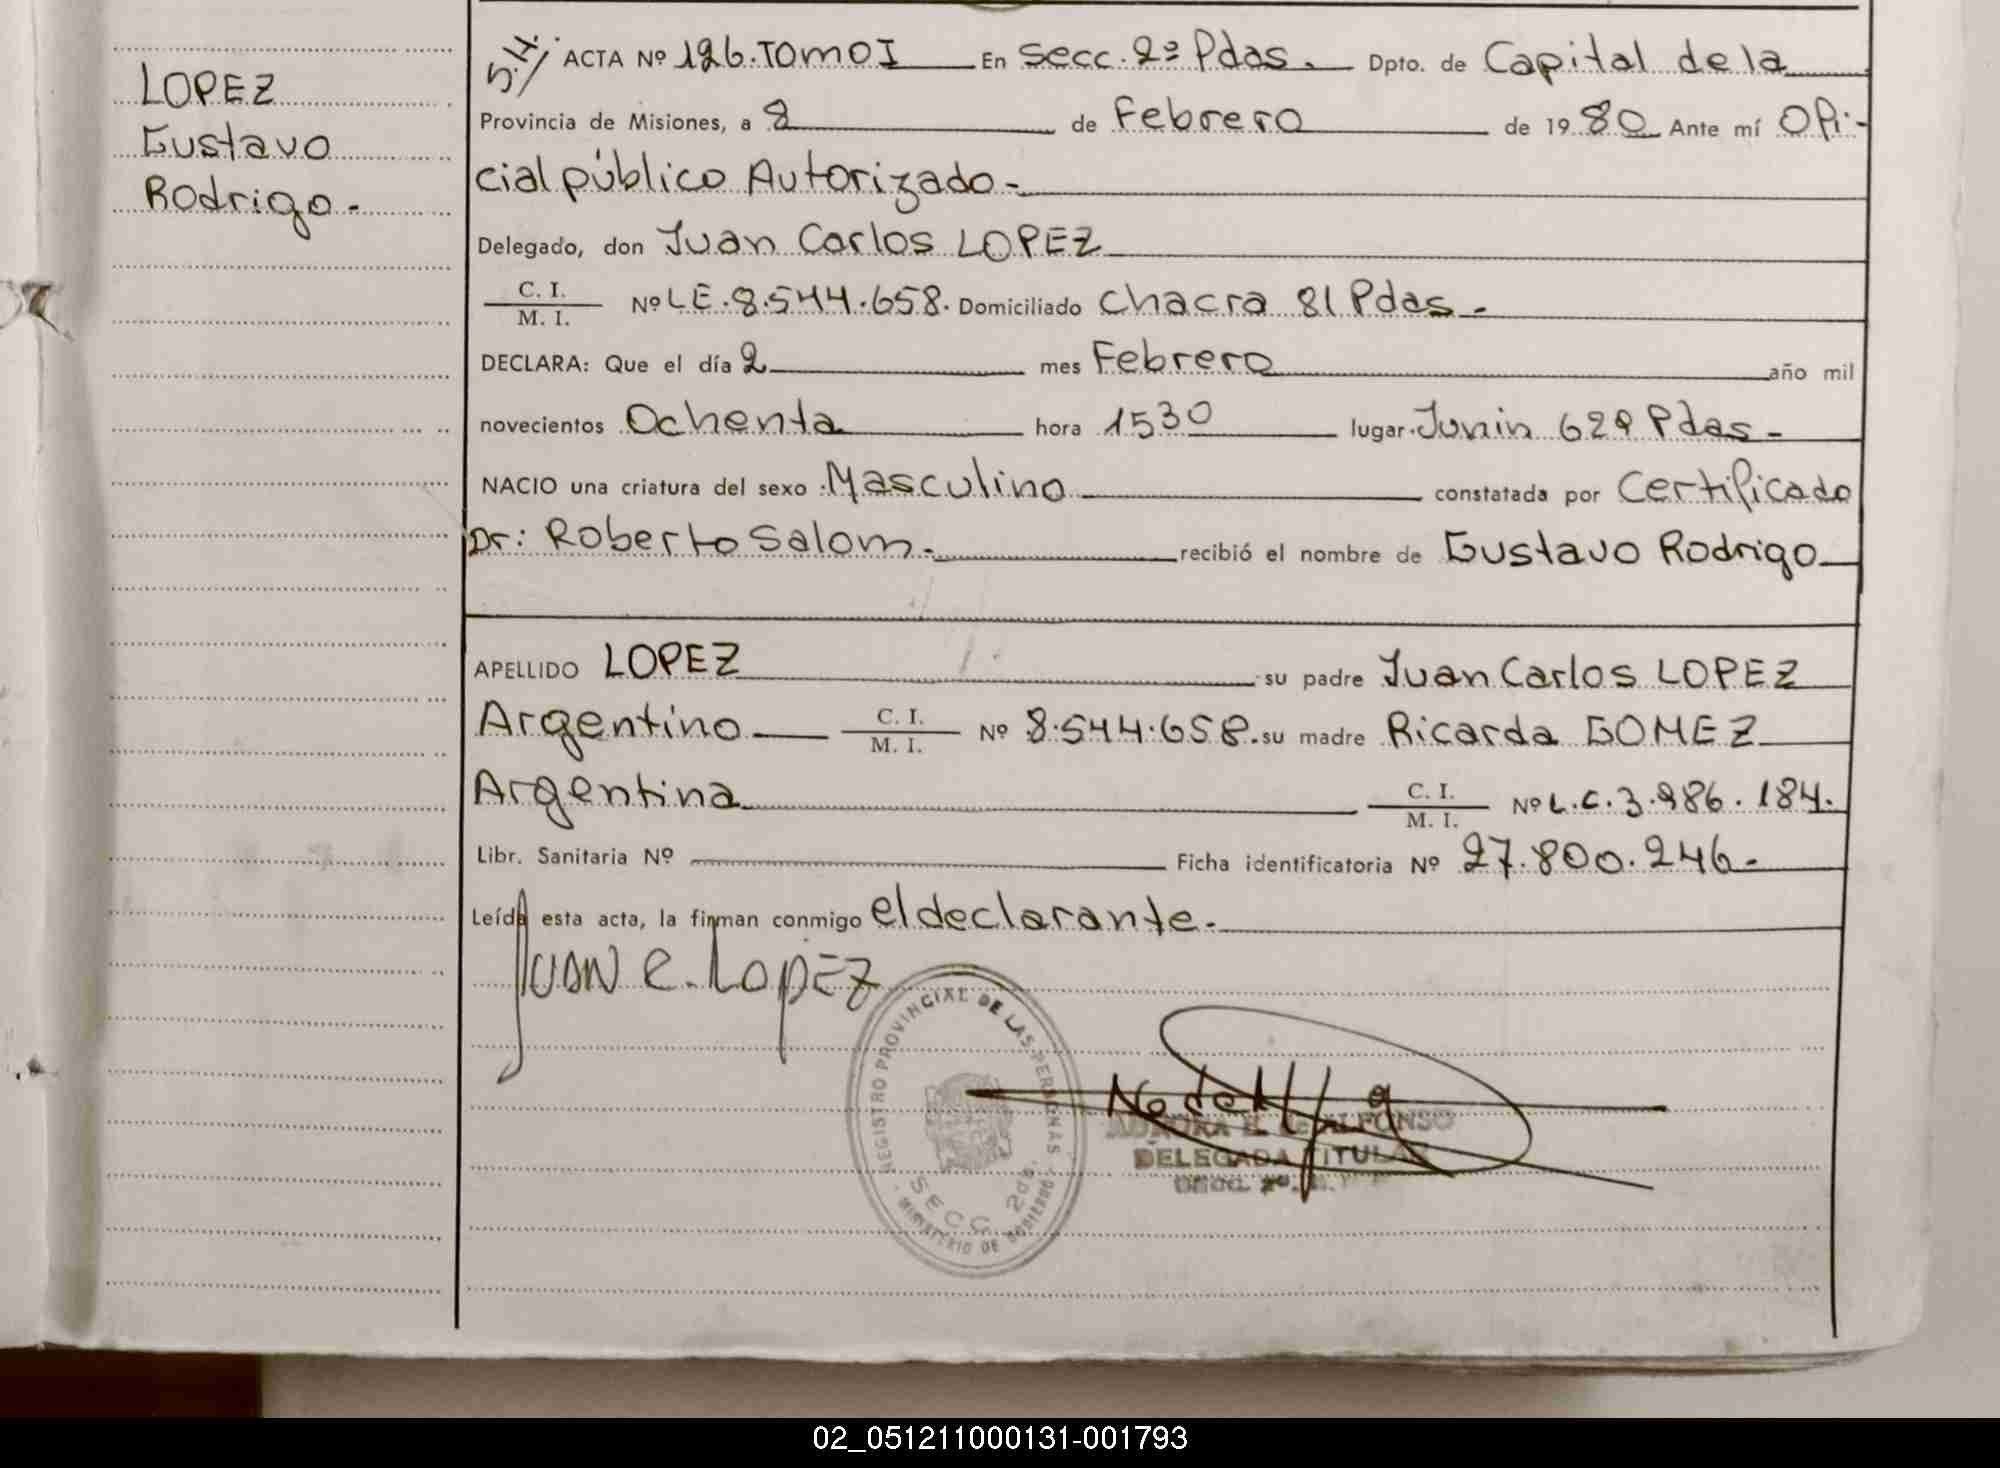 LOPEZ
Gustavo
Rodrigo-
S.H/. ACTA Nº 126.TOMO I En Secc. 2º Pdas. Dpto. de Capital de la
Provincia de Misiones, a 8 de Febrero de 1980 Ante mí Ofi-
cial público Autorizado-
Delegado, don Juan Carlos LOPEZ
C. I.
M. I. Nº LE.8.544.658. Domiciliado Chacra 81 Pdas.-
DECLARA: Que el día 2 mes Febrero año mil
novecientos Ochenta hora 1530 lugar Junin 629 Pdas-
NACIO una criatura del sexo Masculino constatada por Certificado
Dr: Roberto Salom.- recibió el nombre de Gustavo Rodrigo
APELLIDO LOPEZ su padre Juan Carlos LOPEZ
Argentino C. I.
M. I. Nº 8.544.658. su madre Ricarda GOMEZ
Argentina C. I.
M. I. Nº L.C.3.986.184.
Libr. Sanitaria Nº Ficha identificatoria Nº 27.800.246-
Leída esta acta, la firman conmigo el declarante.-
JUAN C. LOPEZ
REGISTRO PROVINCIAL DE LAS PERSONAS
SECC. 2da.
MINISTERIO DE GOBIERNO
AURORA de ALFONSO
DELEGADA TITULAR
02_051211000131-001793